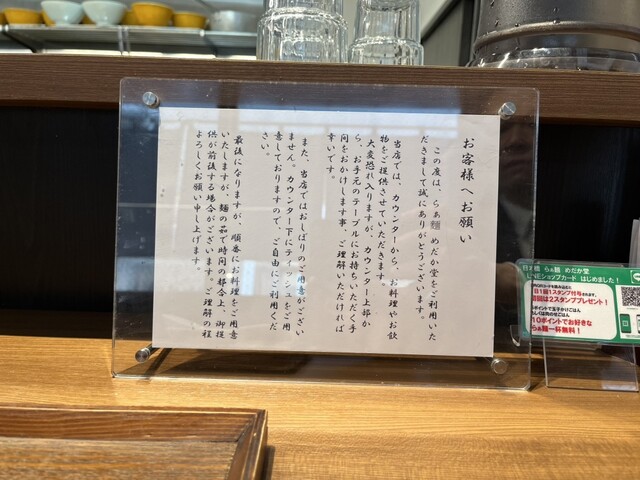 お客様へお願い
この度は、らぁ麺 めだか堂をご利用いた
だきまして誠にありがとうございます。
当店では、カウンターから、お料理やお飲
物をご提供させていただきます。
大変恐れ入りますが、カウンター上部か
ら、お手元のテーブルにお持ちいただく手
間をおかけします事、ご理解いただければ
幸いです。
また、当店ではおしぼりのご用意がござい
ません。カウンター下にティッシュをご用
意しておりますので、ご自由にご利用くだ
さい。
最後になりますが、順番にお料理をご用意
いたしますが、麺の茹で時間の都合上、御提
供が前後する場合がございます。ご理解の程
よろしくお願い申し上げます。
らぁ麺 めだか堂
LINEショップカード はじめました！
1日1回1スタンプ付与されます。
初回は2スタンププレゼント！
10ポイントでお好きな
らぁ麺一杯無料！